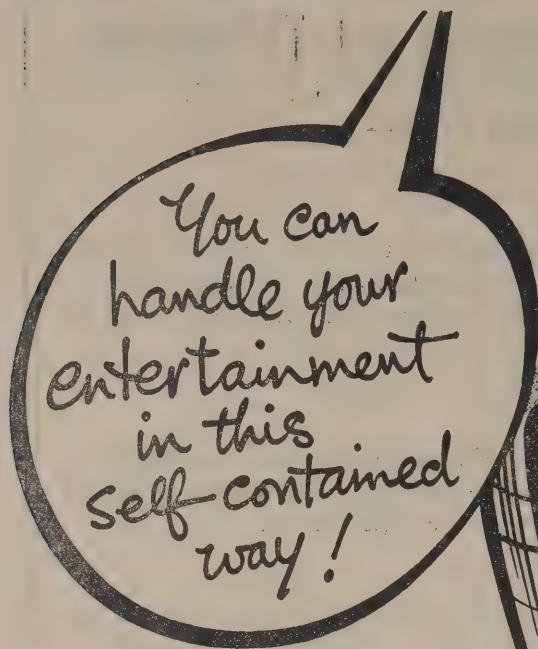 You can
handle your
entertainment
in this
self-contained
way!